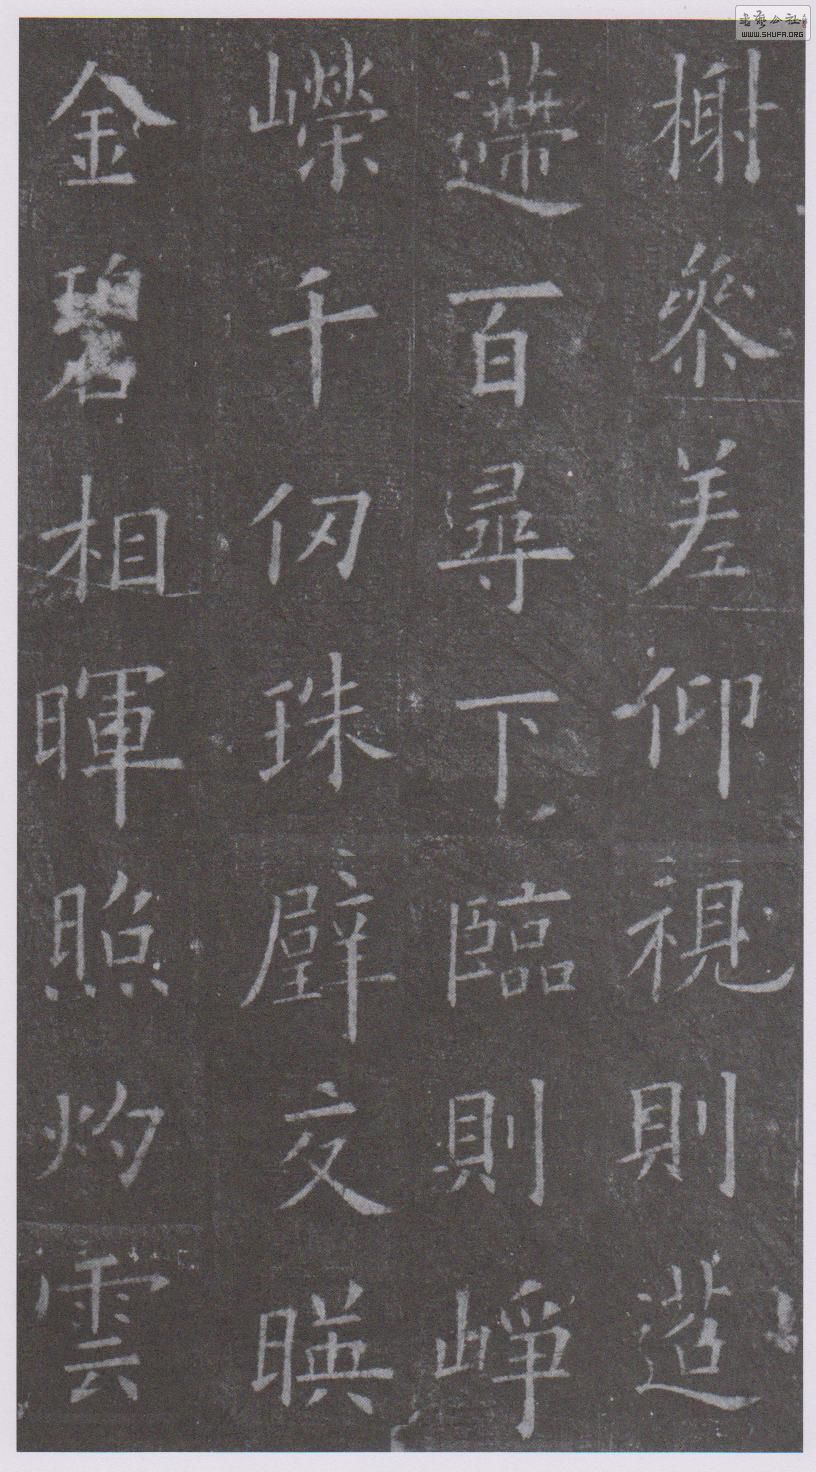 榭參差仰視則迢
遰百尋下臨則崢
嶸千仞珠壁交暎
金碧相暉照灼雲
書法公社
WWW.SHUFA.ORG